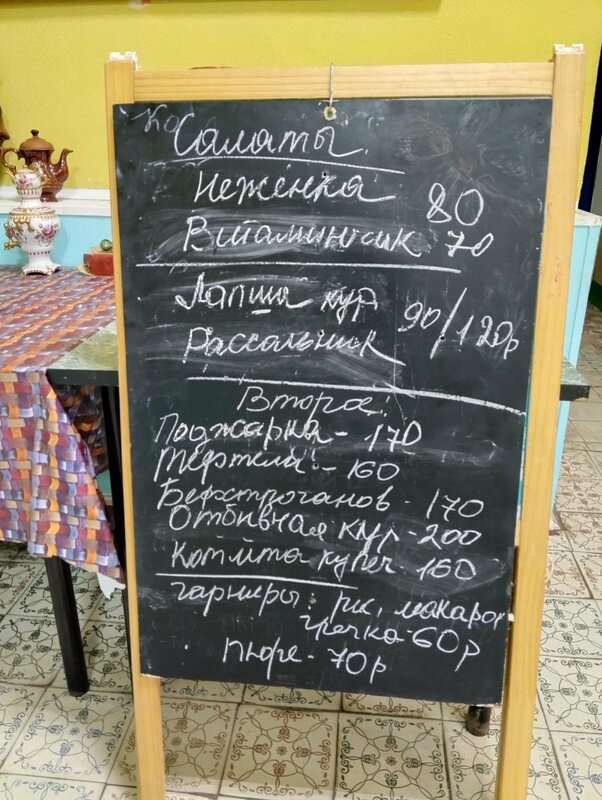 Салаты
Неженка 80
Витаминчик 70
Лапша кур 90/120р
Рассольник
Второе:
Поджарка - 170
Тефтели - 160
Бефстроганов - 170
Отбивная кур - 200
Котлета купеч. 160
гарниры: рис, макарон
гречка - 60р
пюре - 70р